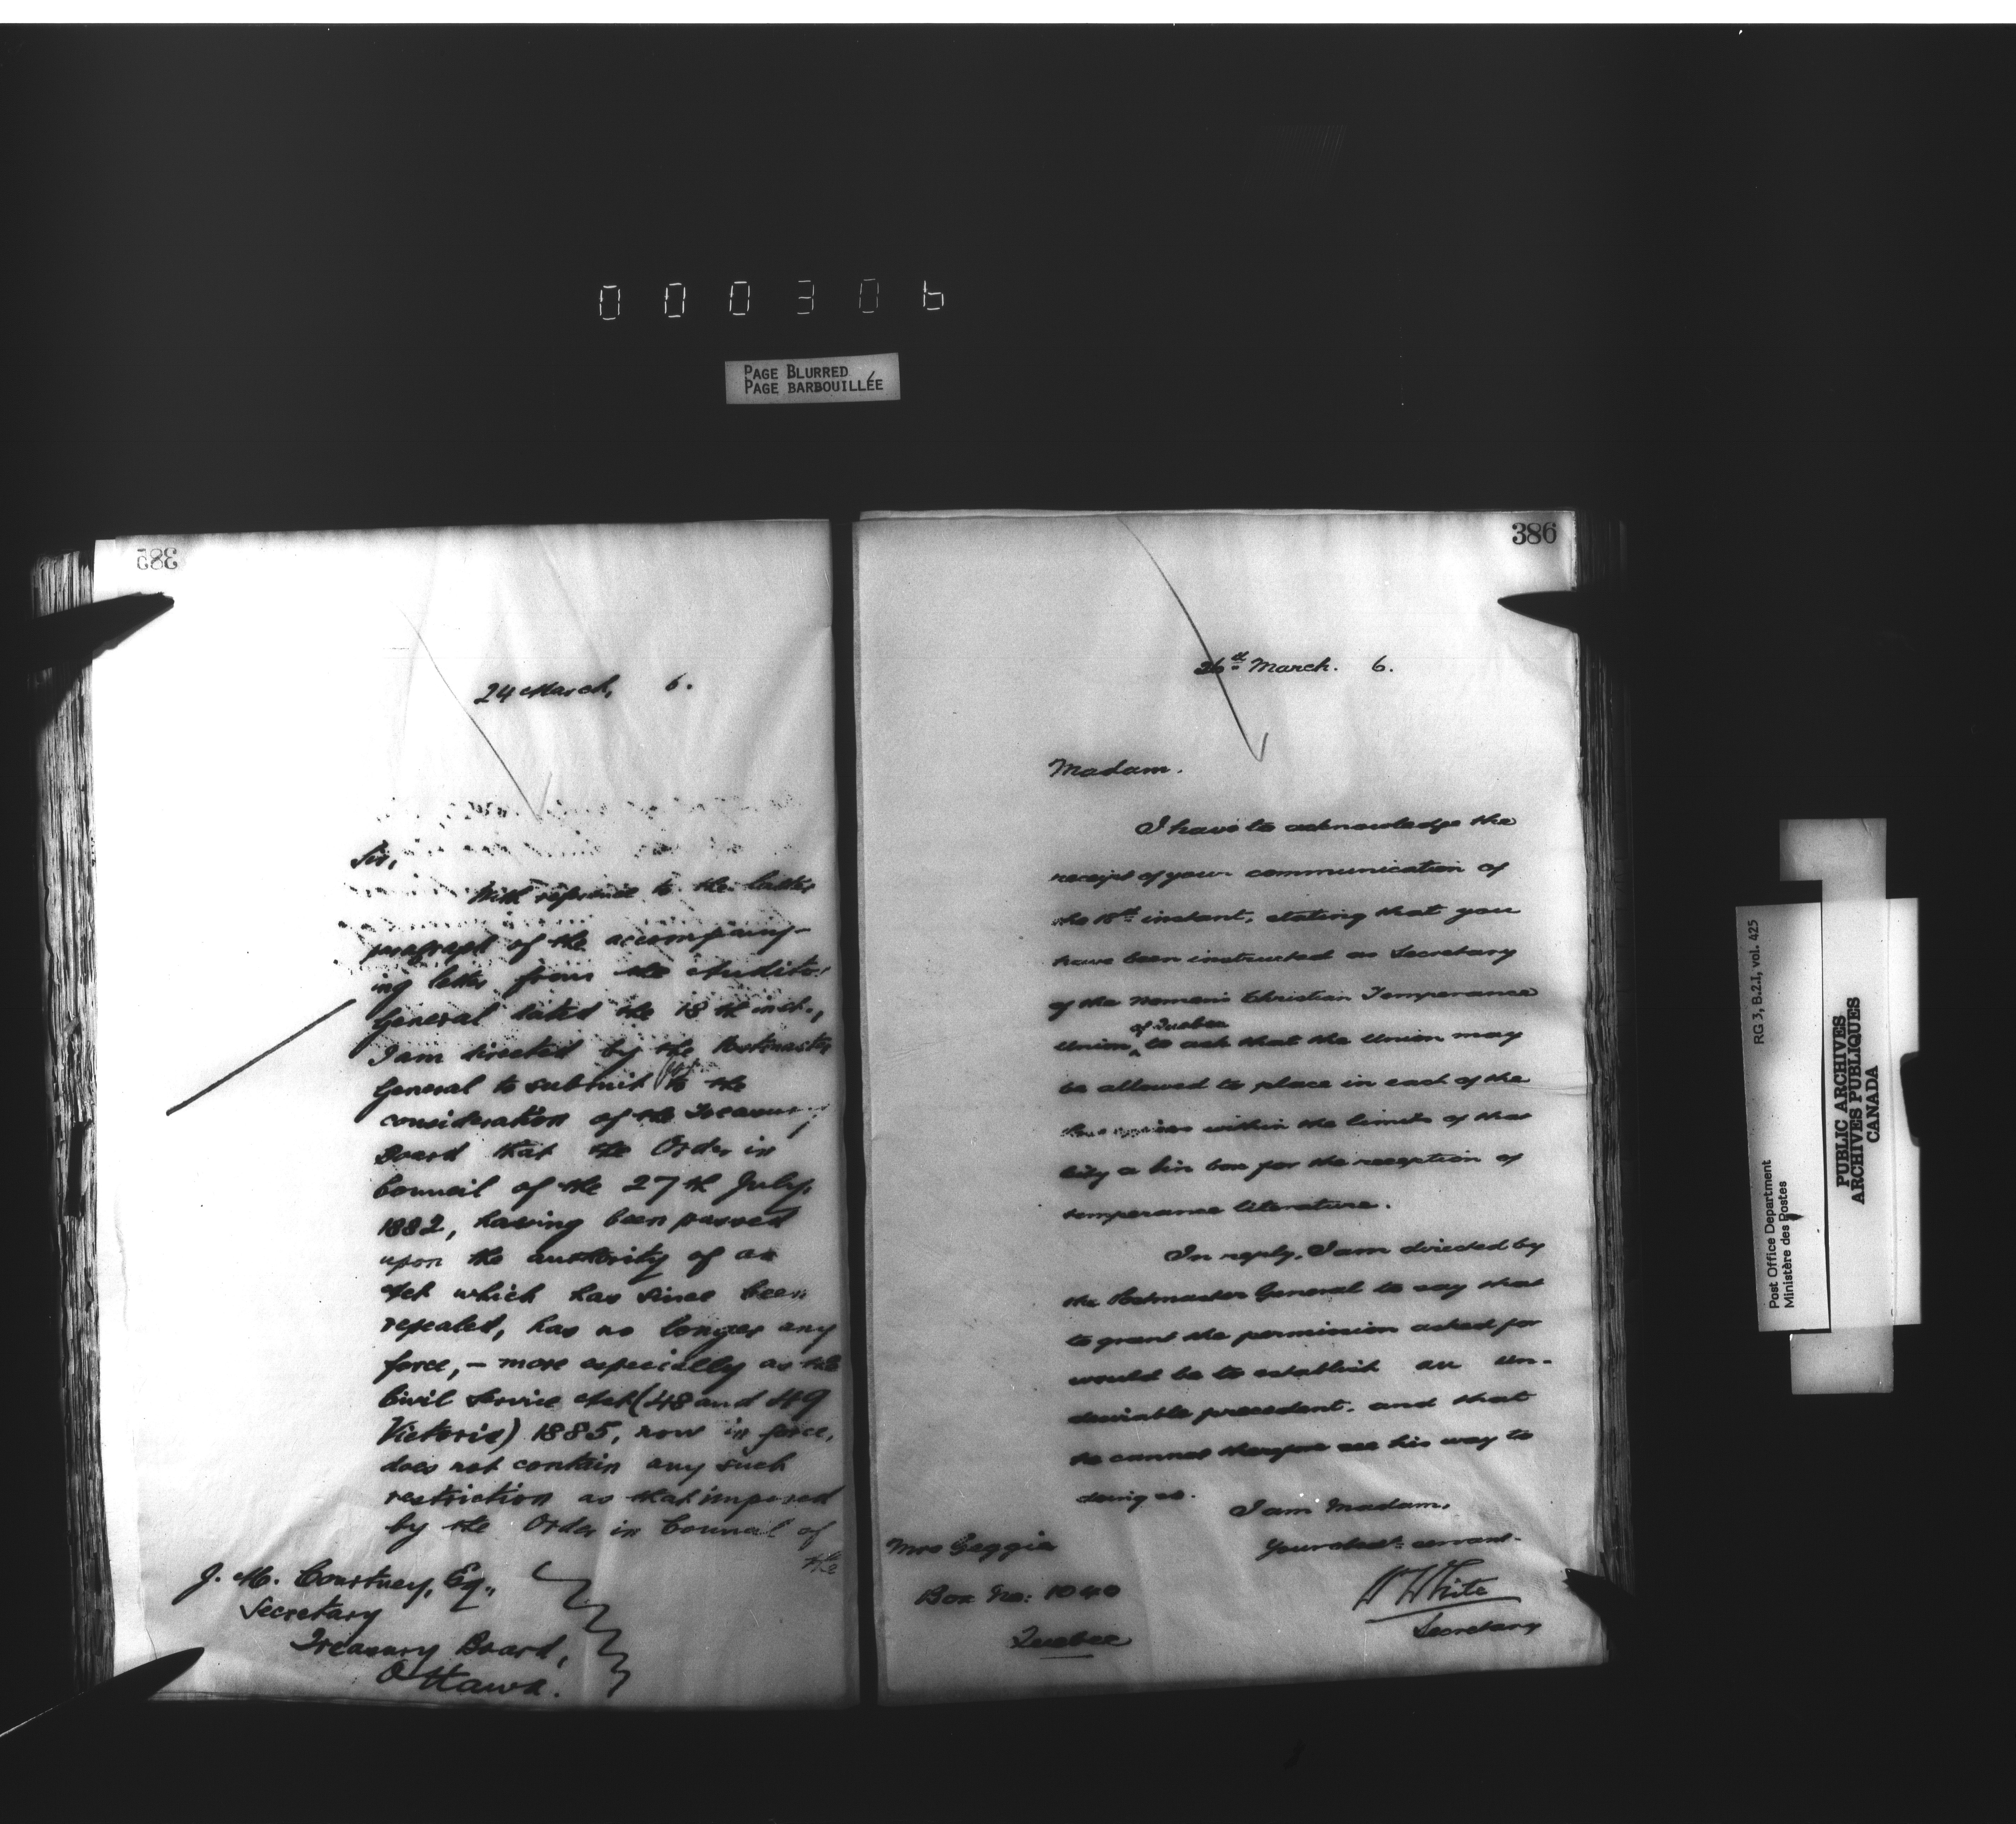 000306
PAGE BLURRED
PAGE BARBOUILLÉE
385
24 March, 6.
Sir,
With reference to the latter
paragraph of the accompany-
ing letter from the Auditor
General dated the 18th inst.,
I am directed by the Postmaster
General to submit to the
consideration of the Treasury
Board that the Order in
Council of the 27th July,
1882, having been passed
upon the authority of an
Act which has since been
repealed, has no longer any
force, – more especially as the
Civil Service Act (48 and 49
Victoria) 1885, now in force,
does not contain any such
restriction as that imposed
by the Order in Council of
the
J. M. Courtney, Esq.,
Secretary
Treasury Board,
Ottawa.
386
26th March. 6.
Madam.
I have to acknowledge the
receipt of your communication of
the 18th instant, stating that you
have been instructed as Secretary
of the Women's Christian Temperance
Union of Quebec to ask that the Union may
be allowed to place in each of the
within the limits of that
City a tin box for the reception of
temperance literature.
In reply, I am directed by
the Postmaster General to say that
to grant the permission asked for
would be to establish an un-
desirable precedent, and that
he cannot therefore see his way to
doing so.
I am Madam,
Your obedt. servant.
W White
Secretary
Mrs Geggie
Box No: 1040
Quebec
RG 3, B.2.I, vol. 425
Post Office Department
Ministère des Postes
PUBLIC ARCHIVES
ARCHIVES PUBLIQUES
CANADA